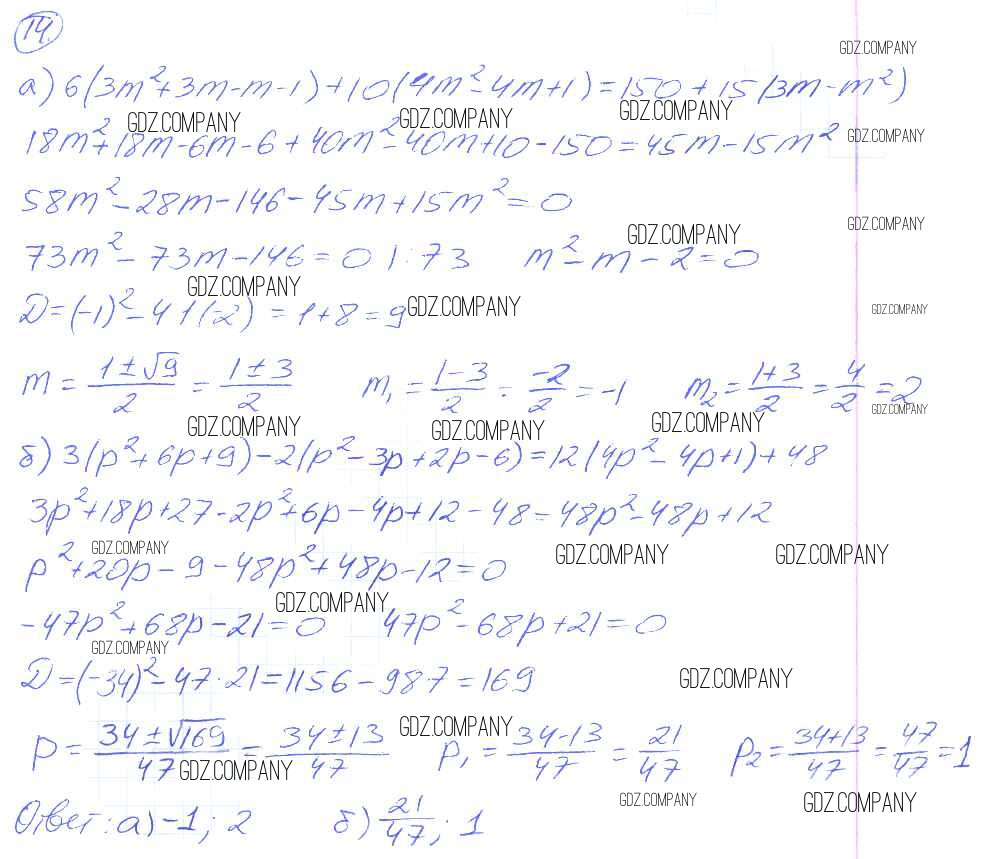 14.
GDZ.COMPANY
а) 6(3m²+3m-m-1)+10(4m²-4m+1)=150+15(3m-m²)
GDZ.COMPANY GDZ.COMPANY GDZ.COMPANY
18m²+18m-6m-6+40m²-40m+10-150=45m-15m² GDZ.COMPANY
58m²-28m-146-45m+15m²=0
GDZ.COMPANY GDZ.COMPANY
73m²-73m-146=0 |:73 m²-m-2=0
GDZ.COMPANY GDZ.COMPANY GDZ.COMPANY
D=(-1)²-4·1(-2)=1+8=9
m=(1±√9)/2=(1±3)/2 m₁=(1-3)/2=-2/2=-1 m₂=(1+3)/2=4/2=2
GDZ.COMPANY GDZ.COMPANY GDZ.COMPANY GDZ.COMPANY
б) 3(p²+6p+9)-2(p²-3p+2p-6)=12(4p²-4p+1)+48
3p²+18p+27-2p²+6p-4p+12-48=48p²-48p+12
GDZ.COMPANY GDZ.COMPANY GDZ.COMPANY
p²+20p-9-48p²+48p-12=0
GDZ.COMPANY
-47p²+68p-21=0 47p²-68p+21=0
GDZ.COMPANY
D=(-34)²-47·21=1156-987=169 GDZ.COMPANY
GDZ.COMPANY
p=(34±√169)/47=(34±13)/47 p₁=(34-13)/47=21/47 p₂=(34+13)/47=47/47=1
GDZ.COMPANY
GDZ.COMPANY GDZ.COMPANY
Ответ: а) -1; 2 б) 21/47; 1